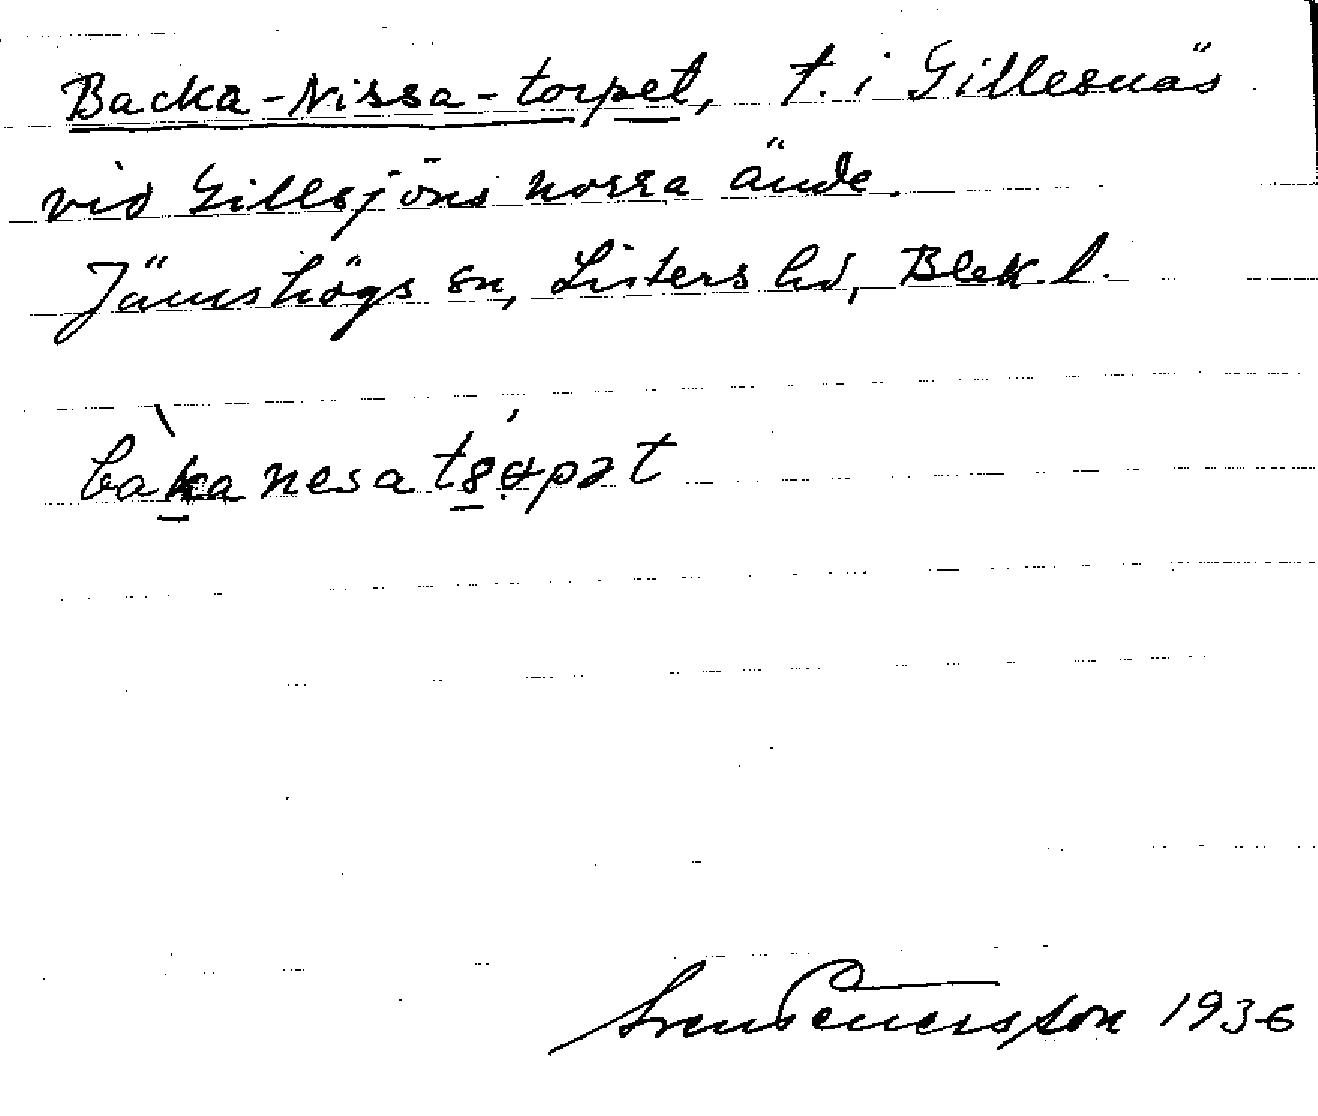 Backa-Nissa-torpet, t. i Gillesnäs
vid Gillsjöns norra ände.
Jämshögs sn, Listers hd, Blek. l.
bakanesa
Sven 1936